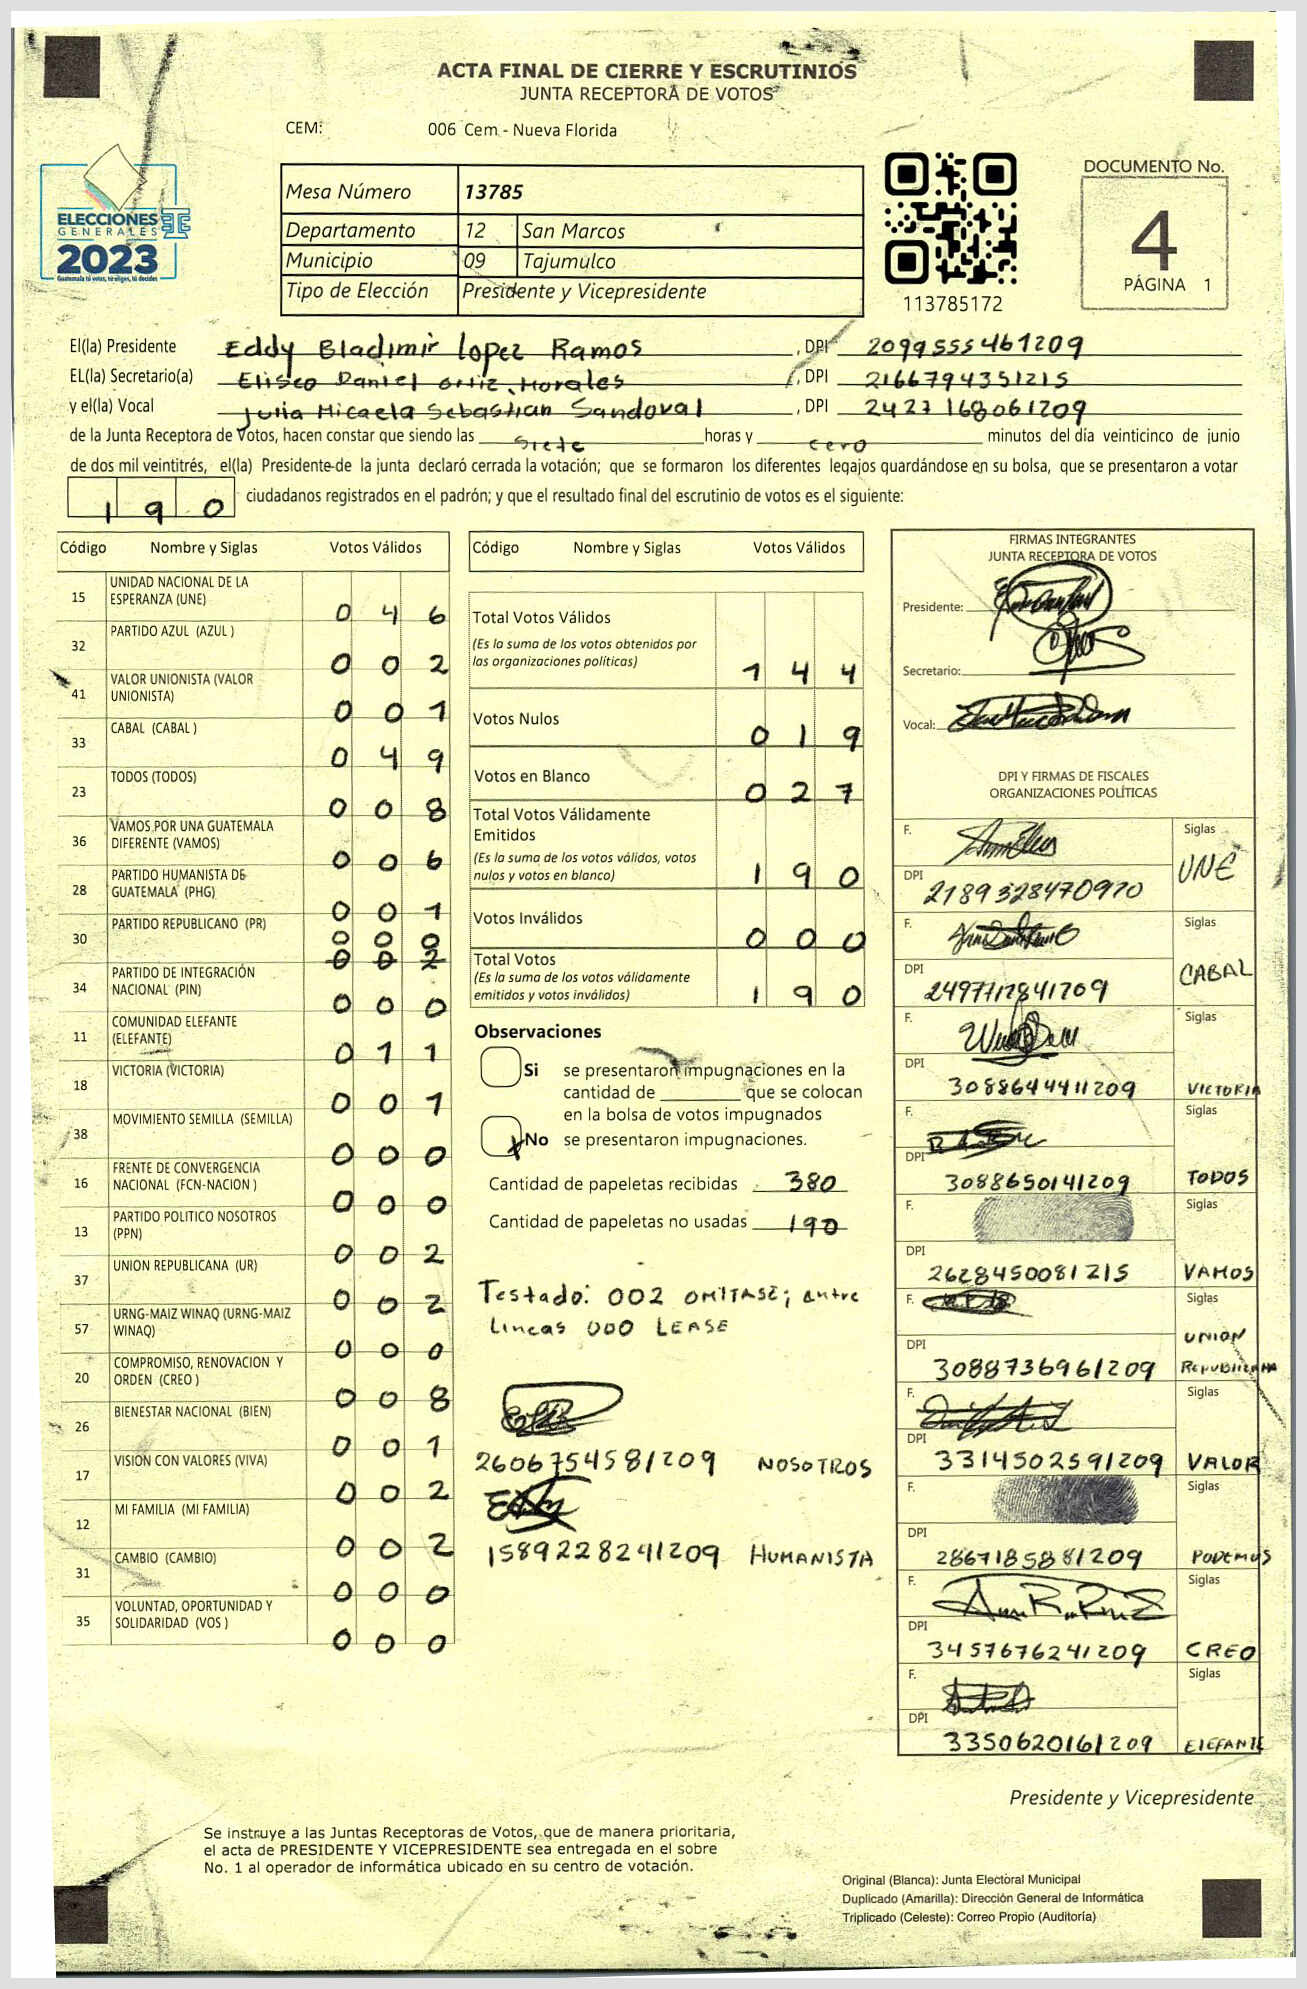 ACTA FINAL DE CIERRE Y ESCRUTINIOS
JUNTA RECEPTORA DE VOTOS
CEM: 006 Cem - Nueva Florida
ELECCIONES
GENERALES
2023
Guatemala tú votas, tú eliges, tú decides
Mesa Número 13785
Departamento 12 San Marcos
Municipio 09 Tajumulco
Tipo de Elección Presidente y Vicepresidente
113785172
DOCUMENTO No.
4
PÁGINA 1
El(la) Presidente Eddy Bladimir lopez Ramos, DPI 2099555461209
EL(la) Secretario(a) Eliseo Daniel Ortiz Morales, DPI 2166794351215
y el(la) Vocal Julia Micaela Sebastian Sandoval, DPI 2427168061209
de la Junta Receptora de Votos, hacen constar que siendo las siete horas y cero minutos del día veinticinco de junio
de dos mil veintitrés, el(la) Presidente de la junta declaró cerrada la votación; que se formaron los diferentes legajos guardándose en su bolsa, que se presentaron a votar
190 ciudadanos registrados en el padrón; y que el resultado final del escrutinio de votos es el siguiente:
Código Nombre y Siglas Votos Válidos
15 UNIDAD NACIONAL DE LA ESPERANZA (UNE) 0 4 6
32 PARTIDO AZUL (AZUL ) 0 0 2
41 VALOR UNIONISTA (VALOR UNIONISTA) 0 0 1
33 CABAL (CABAL ) 0 4 9
23 TODOS (TODOS) 0 0 8
36 VAMOS POR UNA GUATEMALA DIFERENTE (VAMOS) 0 0 6
28 PARTIDO HUMANISTA DE GUATEMALA (PHG) 0 0 1
30 PARTIDO REPUBLICANO (PR) 0 0 0
0 0 2
34 PARTIDO DE INTEGRACIÓN NACIONAL (PIN) 0 0 0
11 COMUNIDAD ELEFANTE (ELEFANTE) 0 1 1
18 VICTORIA (VICTORIA) 0 0 1
38 MOVIMIENTO SEMILLA (SEMILLA) 0 0 0
16 FRENTE DE CONVERGENCIA NACIONAL (FCN-NACION ) 0 0 0
13 PARTIDO POLITICO NOSOTROS (PPN) 0 0 2
37 UNION REPUBLICANA (UR) 0 0 2
57 URNG-MAIZ WINAQ (URNG-MAIZ WINAQ) 0 0 0
20 COMPROMISO, RENOVACION Y ORDEN (CREO ) 0 0 8
26 BIENESTAR NACIONAL (BIEN) 0 0 1
17 VISION CON VALORES (VIVA) 0 0 2
12 MI FAMILIA (MI FAMILIA) 0 0 2
31 CAMBIO (CAMBIO) 0 0 0
35 VOLUNTAD, OPORTUNIDAD Y SOLIDARIDAD (VOS ) 0 0 0
Código Nombre y Siglas Votos Válidos
Total Votos Válidos
(Es la suma de los votos obtenidos por
las organizaciones políticas) 1 4 4
Votos Nulos 0 1 9
Votos en Blanco 0 2 7
Total Votos Válidamente
Emitidos
(Es la suma de los votos válidos, votos
nulos y votos en blanco) 1 9 0
Votos Inválidos 0 0 0
Total Votos
(Es la suma de los votos válidamente
emitidos y votos inválidos) 1 9 0
Observaciones
Si se presentaron impugnaciones en la
cantidad de ________ que se colocan
en la bolsa de votos impugnados
x No se presentaron impugnaciones.
Cantidad de papeletas recibidas 380
Cantidad de papeletas no usadas 190
Testado: 002 OMITASE; entre
lineas 000 LEASE
2606754581209 NOSOTROS
1589228241209 HUMANISTA
FIRMAS INTEGRANTES
JUNTA RECEPTORA DE VOTOS
Presidente:
Secretario:
Vocal:
DPI Y FIRMAS DE FISCALES
ORGANIZACIONES POLÍTICAS
F. Siglas
DPI 2189328470970 UNE
F. Siglas
DPI 2497117841209 CABAL
F. Siglas
DPI 3088644411209 VICTORIA
F. Siglas
DPI 3088650141209 TODOS
F. Siglas
DPI 2628450081215 VAMOS
F. Siglas
DPI 3088736961209 UNION REPUBLICANA
F. Siglas
DPI 3314502591209 VALOR
F. Siglas
DPI 2867185881209 PODEMOS
F. Siglas
DPI 3457676241209 CREO
F. Siglas
DPI 3350620161209 ElEFANTE
Presidente y Vicepresidente
Se instruye a las Juntas Receptoras de Votos, que de manera prioritaria,
el acta de PRESIDENTE Y VICEPRESIDENTE sea entregada en el sobre
No. 1 al operador de informática ubicado en su centro de votación.
Original (Blanca): Junta Electoral Municipal
Duplicado (Amarilla): Dirección General de Informática
Triplicado (Celeste): Correo Propio (Auditoría)